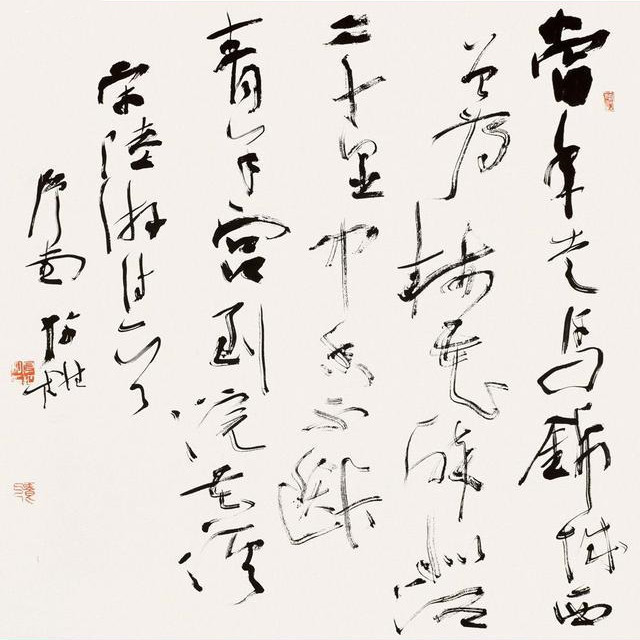 當年走馬錦城西
曾為梅花醉似泥
二十里中香不斷
青羊宮到浣花溪
宋陸游詩